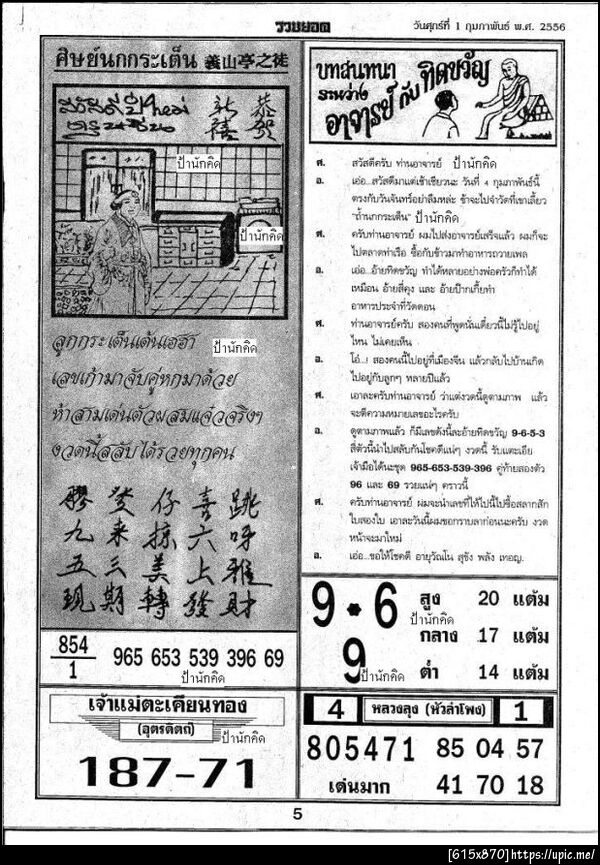 รวมยอด
วันศุกร์ที่ 1 กุมภาพันธ์ พ.ศ. 2556
ศิษย์นกกระเต็น 義山亭之徒
恭賀
新禧
ป้านักคิด
ป้านักคิด
ลูกกระเต็นเต้นเฮฮา ป้านักคิด
เลขเก้ามาจับคู่หกมาด้วย
ห้าสามเด่นตัวผสมแจ๋วจริงๆ
งวดนี้สลับได้รวยทุกคน
膠登仔喜跳
九來抹六呀
五三美上雅
現期轉發財
854
1
965 653 539 396 69
ป้านักคิด
เจ้าแม่ตะเคียนทอง
(อุตรดิตถ์) ป้านักคิด
187-71
บทสนทนา
ระหว่าง
อาจารย์ กับ ทิดขวัญ
ศ. สวัสดีครับ ท่านอาจารย์ ป้านักคิด
อ. เอ่อ...สวัสดีมาแต่เช้าเชียวนะ วันที่ 4 กุมภาพันธ์นี้
ตรงกับวันจันทร์อย่าลืมหล่ะ ข้าจะไปจำวัดที่เขาเลี้ยว
"ถ้ำนกกระเต็น" ป้านักคิด
ศ. ครับท่านอาจารย์ ผมไปส่งอาจารย์เสร็จแล้ว ผมก็จะ
ไปตลาดท่าเรือ ซื้อกับข้าวมาทำอาหารถวายเพล
อ. เอ่อ...อ้ายทิดขวัญ ทำได้หลายอย่างพ่อครัวก็ทำได้
เหมือน อ้ายสี่คุง และ อ้ายป๊กเกี้ยทำ
อาหารประจำที่วัดตอน
ศ. ท่านอาจารย์ครับ สองคนที่พูดนั่นเดี๋ยวนี้ไม่รู้ไปอยู่
ไหน ไม่เคยเห็น
อ. โอ๋...! สองคนนี้ไปอยู่ที่เมืองจีน แล้วกลับไปบ้านเกิด
ไปอยู่กับลูกๆ หลายปีแล้ว
ศ. เอาละครับท่านอาจารย์ ว่าแต่งวดนี้ดูตามภาพ แล้ว
จะตีความหมายเลขอะไรครับ
อ. ดูตามภาพแล้ว ก็มีเลขดังนี้ละอ้ายทิดขวัญ 9-6-5-3
สี่ตัวนี้นำไปสลับกันโชคดีแน่ๆ งวดนี้ รับแตะเอีย
เจ้ามือได้นะชุด 965-653-539-396 คู่ท้ายสองตัว
96 และ 69 รวยแน่ๆ คราวนี้
ศ. ครับท่านอาจารย์ ผมจะนำเลขที่ให้ไปนี้ไปซื้อสลากสัก
ใบสองใบ เอาละวันนี้ผมขอกราบลาก่อนนะครับ งวด
หน้าจะมาใหม่
อ. เอ่อ...ขอให้โชคดี อายุวัณโน สุขัง พลัง เทอญ.
9 * 6 สูง 20 แต้ม
ป้านักคิด
กลาง 17 แต้ม
9 ป้านักคิด ต่ำ 14 แต้ม
4 หลวงลุง (หัวลำโพง) 1
805471 85 04 57
เด่นมาก 41 70 18
5
[615x870]https://upic.me/